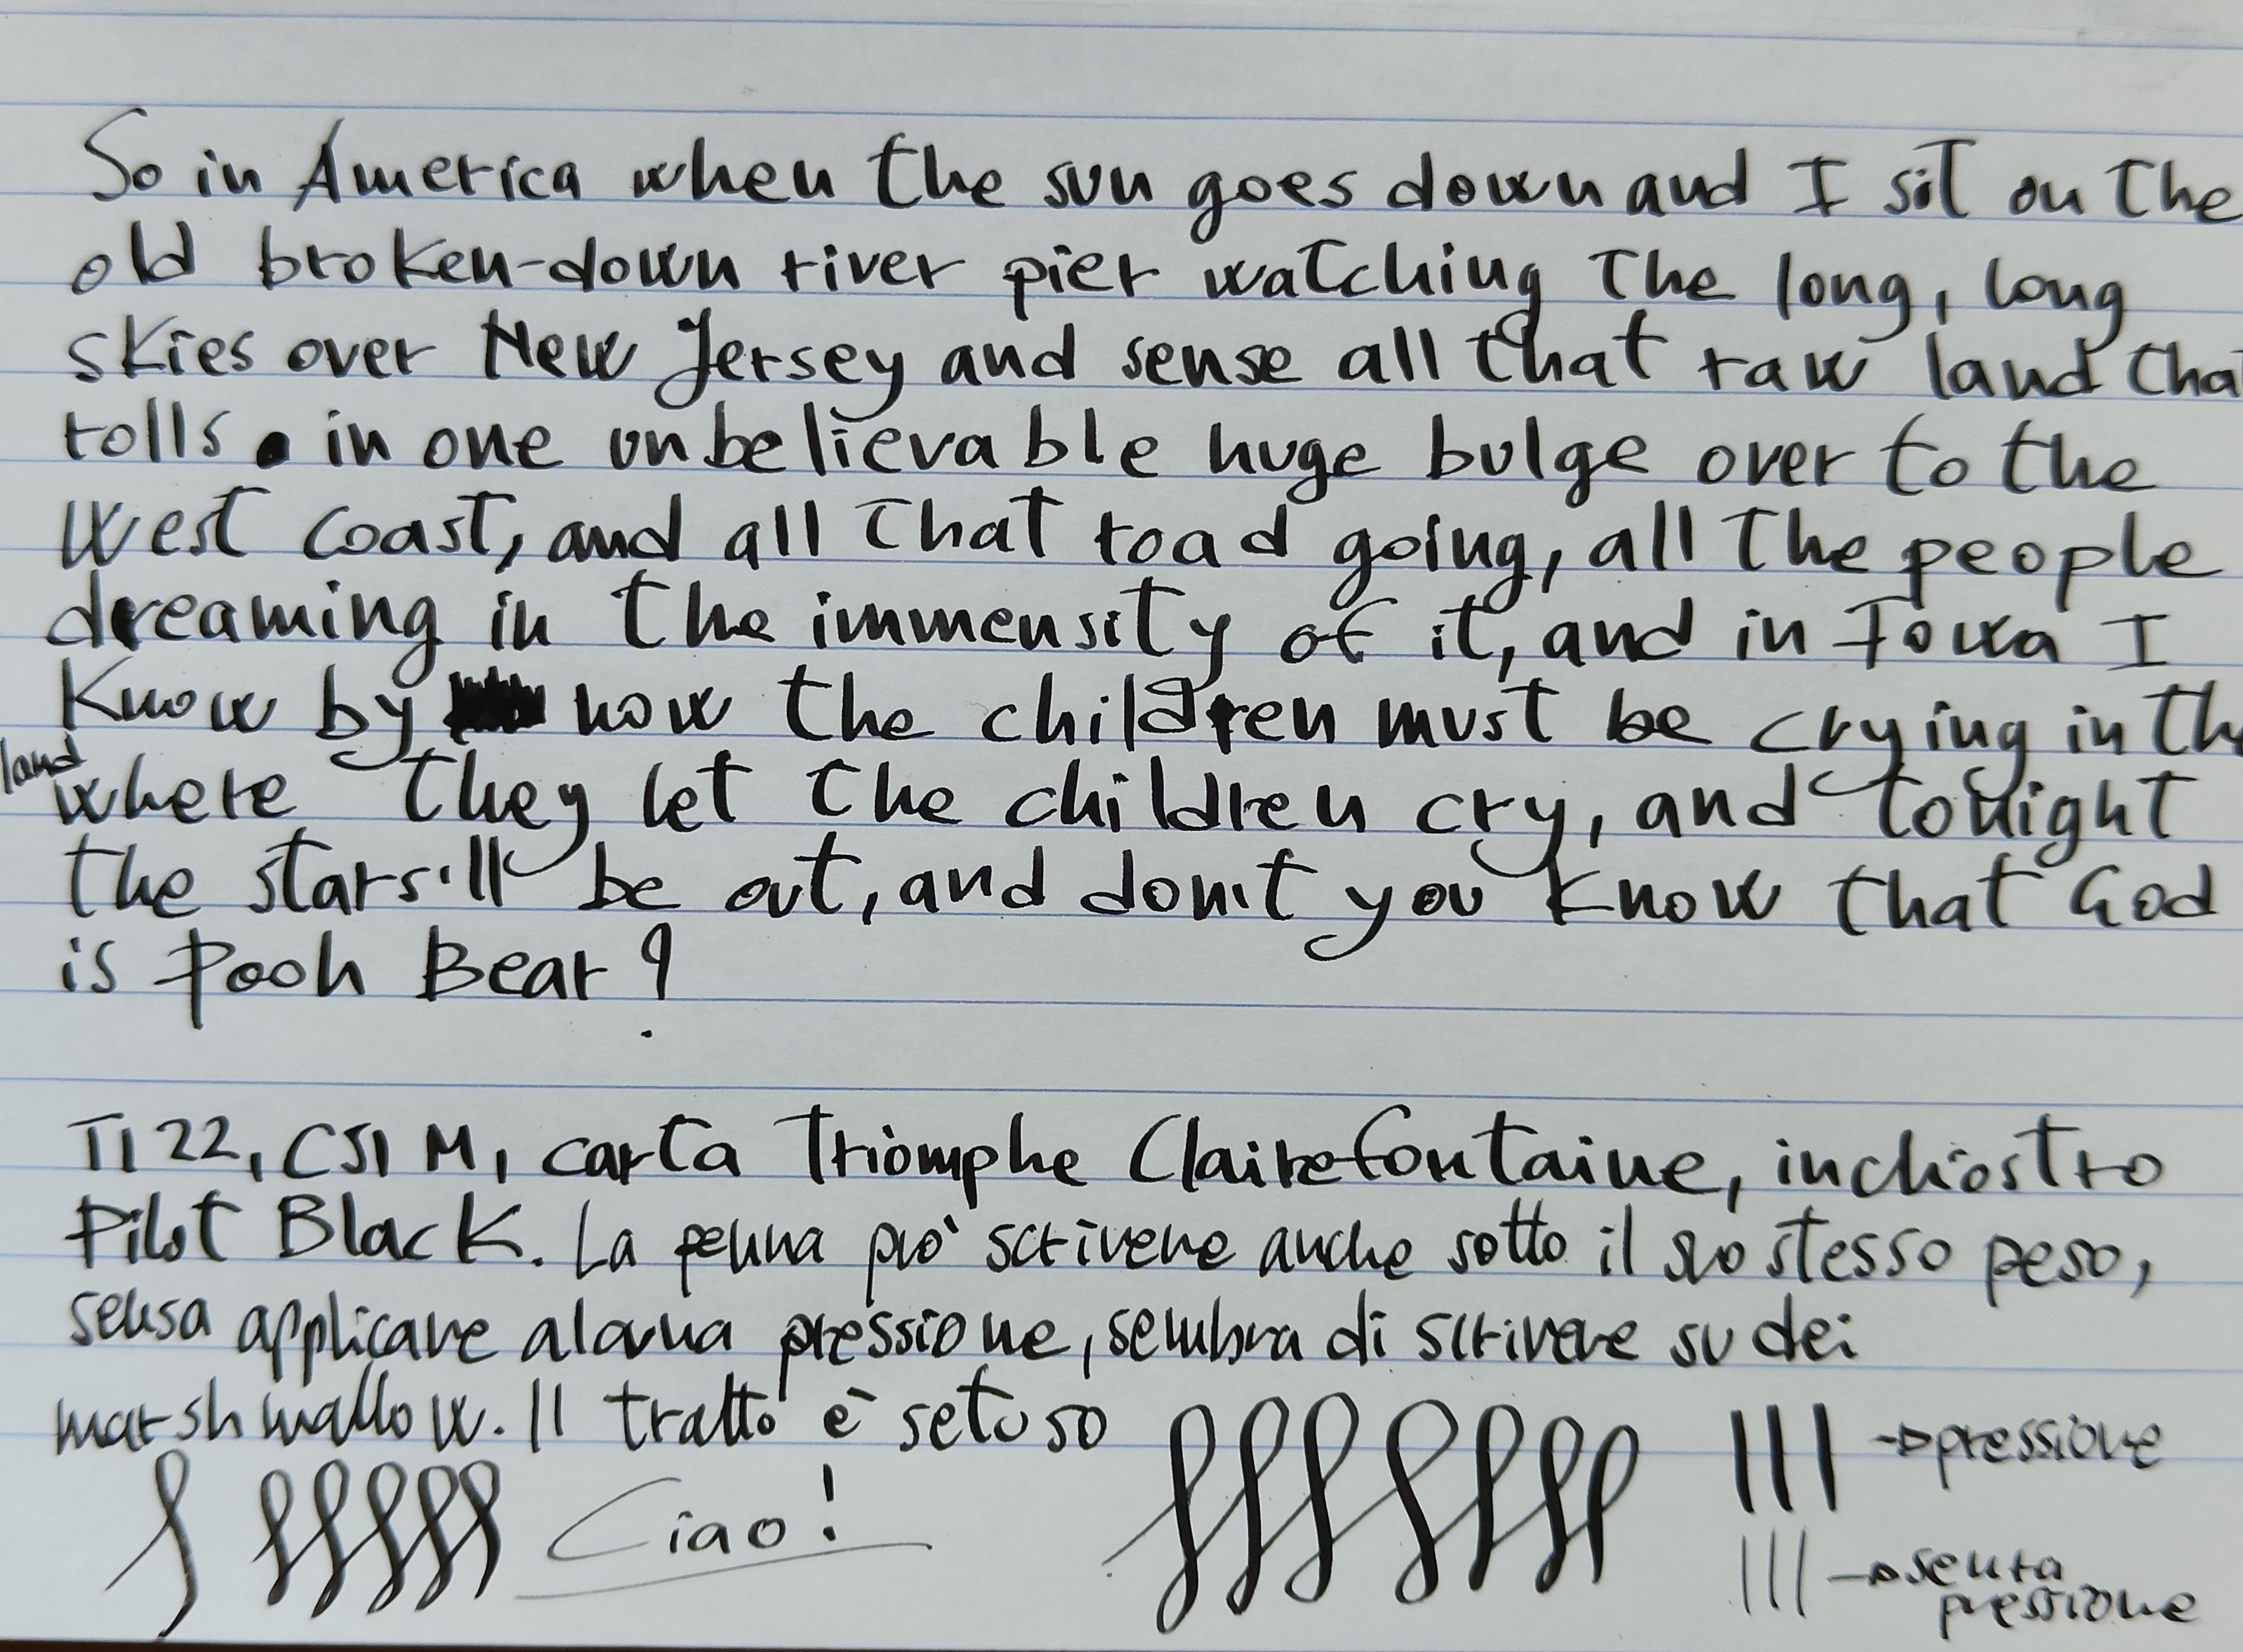 So in America when the sun goes down and I sit on the
old broken-down river pier watching the long, long
skies over New Jersey and sense all that raw land tha
rolls in one unbelievable huge bulge over to the
West Coast, and all that road going, all the people
dreaming in the immensity of it, and in Iowa I
know by now the children must be crying in th
land
where they let the children cry, and tonight
the stars'll be out, and don't you know that God
is Pooh Bear?
TI 22, CSI M, carta Triomphe Clairefontaine, inchiostro
Pilot Black. La penna può scrivere anche sotto il suo stesso peso,
sensa applicare alcuna pressione, sembra di scrivere su dei
marshmallow. Il tratto è setoso
Ciao!
→ pressione
→ senza
pressione